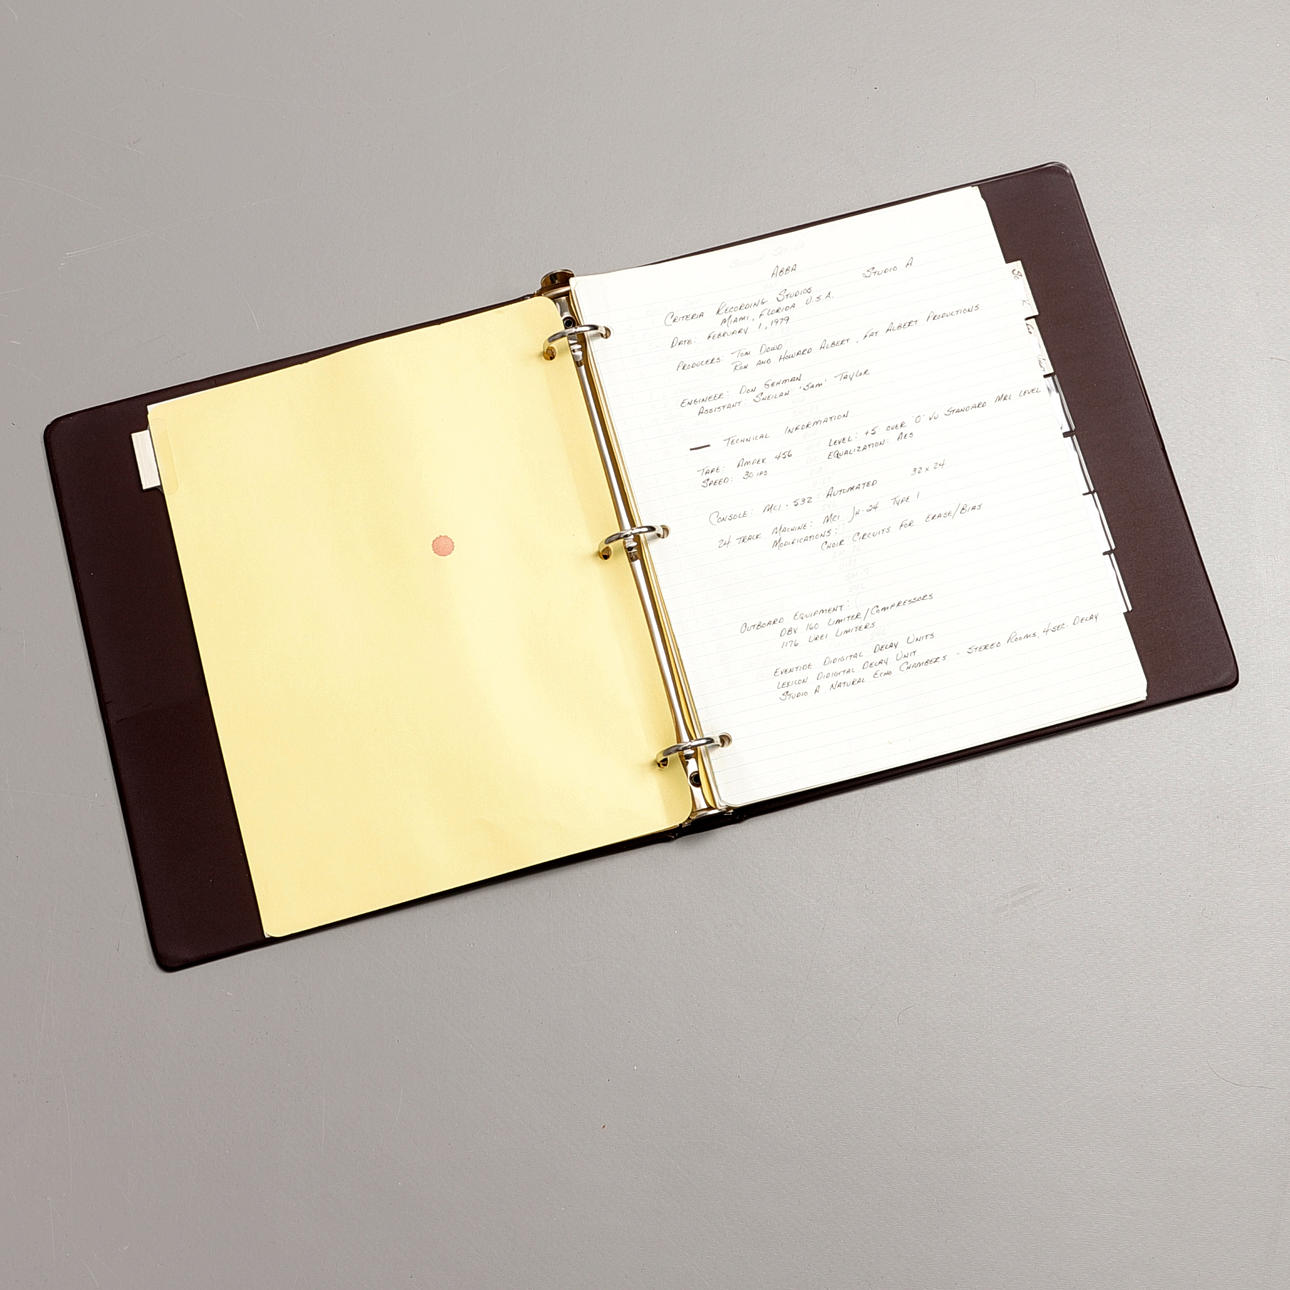 ABBA
STUDIO A
CRITERIA RECORDING STUDIOS
MIAMI, FLORIDA U.S.A.
DATE: FEBRUARY 1, 1979
PRODUCERS: TOM DOWD
RON AND HOWARD ALBERT, FAT ALBERT PRODUCTIONS
ENGINEER: DON GEHMAN
ASSISTANT: SHEILAH "SAM" TAYLOR
— TECHNICAL INFORMATION
TAPE: AMPEX 456 LEVEL: +5 OVER "O" VU STANDARD MRL LEVEL
SPEED: 30 IPS EQUALIZATION: AES
CONSOLE: MCI - 532 : AUTOMATED 32 x 24
24 TRACK MACHINE: MCI JH-24 TYPE 1
MODIFICATIONS:
CHOIR CIRCUITS FOR ERASE/BIAS
OUTBOARD EQUIPMENT:
DBX 160 LIMITER/COMPRESSORS
1176 UREI LIMITERS
EVENTIDE DIDIGITAL DELAY UNITS
LEXICON DIDIGITAL DELAY UNIT
STUDIO A NATURAL ECHO CHAMBERS - STEREO ROOMS, 4-SEC. DELAY